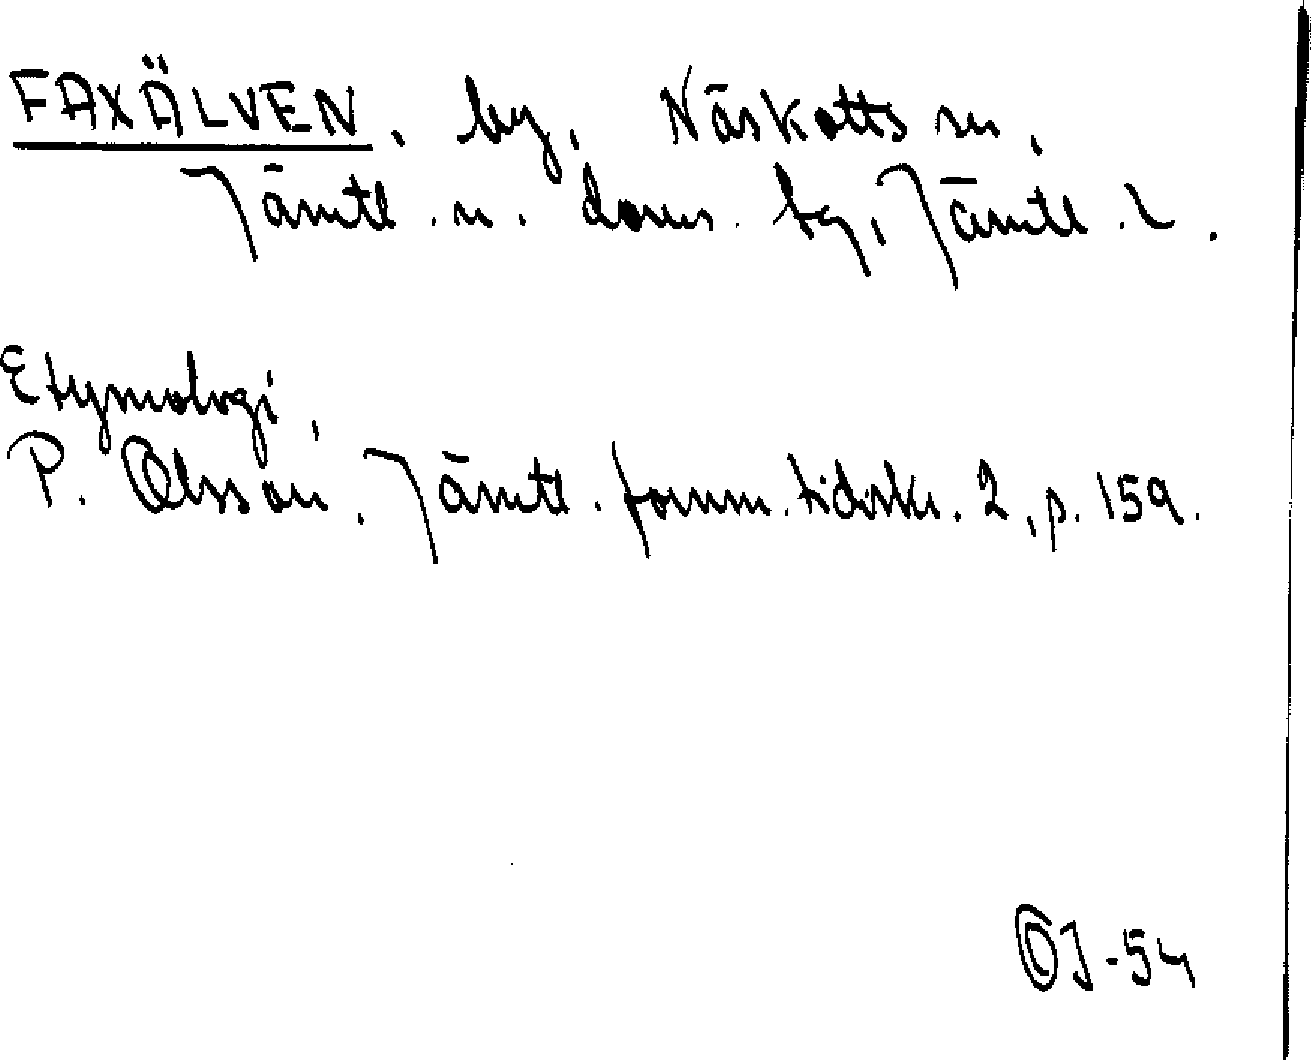 FAXÄLVEN, by, Näskotts sn,
Jämtl. n. doms. bg, Jämtl. l.
Etymologi,
P. Olsson, Jämtl. fornm. tidskr. 2, p. 159.
OJ-54